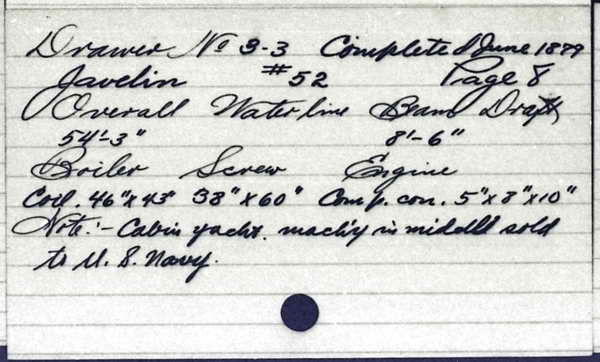 Drawer No 3-3 Completed June 1879
Javelin #52 Page 8
Overall Waterline Beam Draft
54'-3" 8'-6"
Boiler Screw Engine
Coil. 46"x43" 38"x60" Comp. con. 5"x8"x10"
Note:- Cabin yacht. mach'y in middle sold
to U.S. Navy.